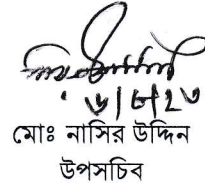 ৬/৮/২৩
মোঃ নাসির উদ্দিন
উপসচিব